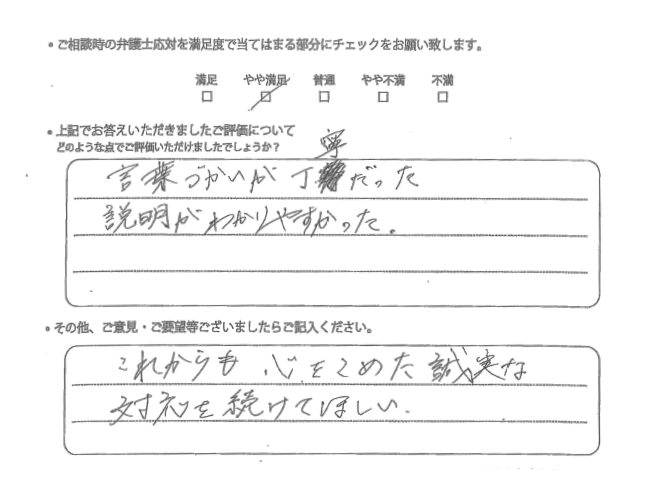 ・ご相談時の弁護士応対を満足度で当てはまる部分にチェックをお願い致します。
満足 やや満足 普通 やや不満 不満
□ ☑ □ □ □
・上記でお答えいただきましたご評価について
どのような点でご評価いただけましたでしょうか？
言葉づかいが丁寧だった
説明がわかりやすかった。
・その他、ご意見・ご要望等ございましたらご記入ください。
これからも 心をこめた誠実な
対応を続けてほしい.